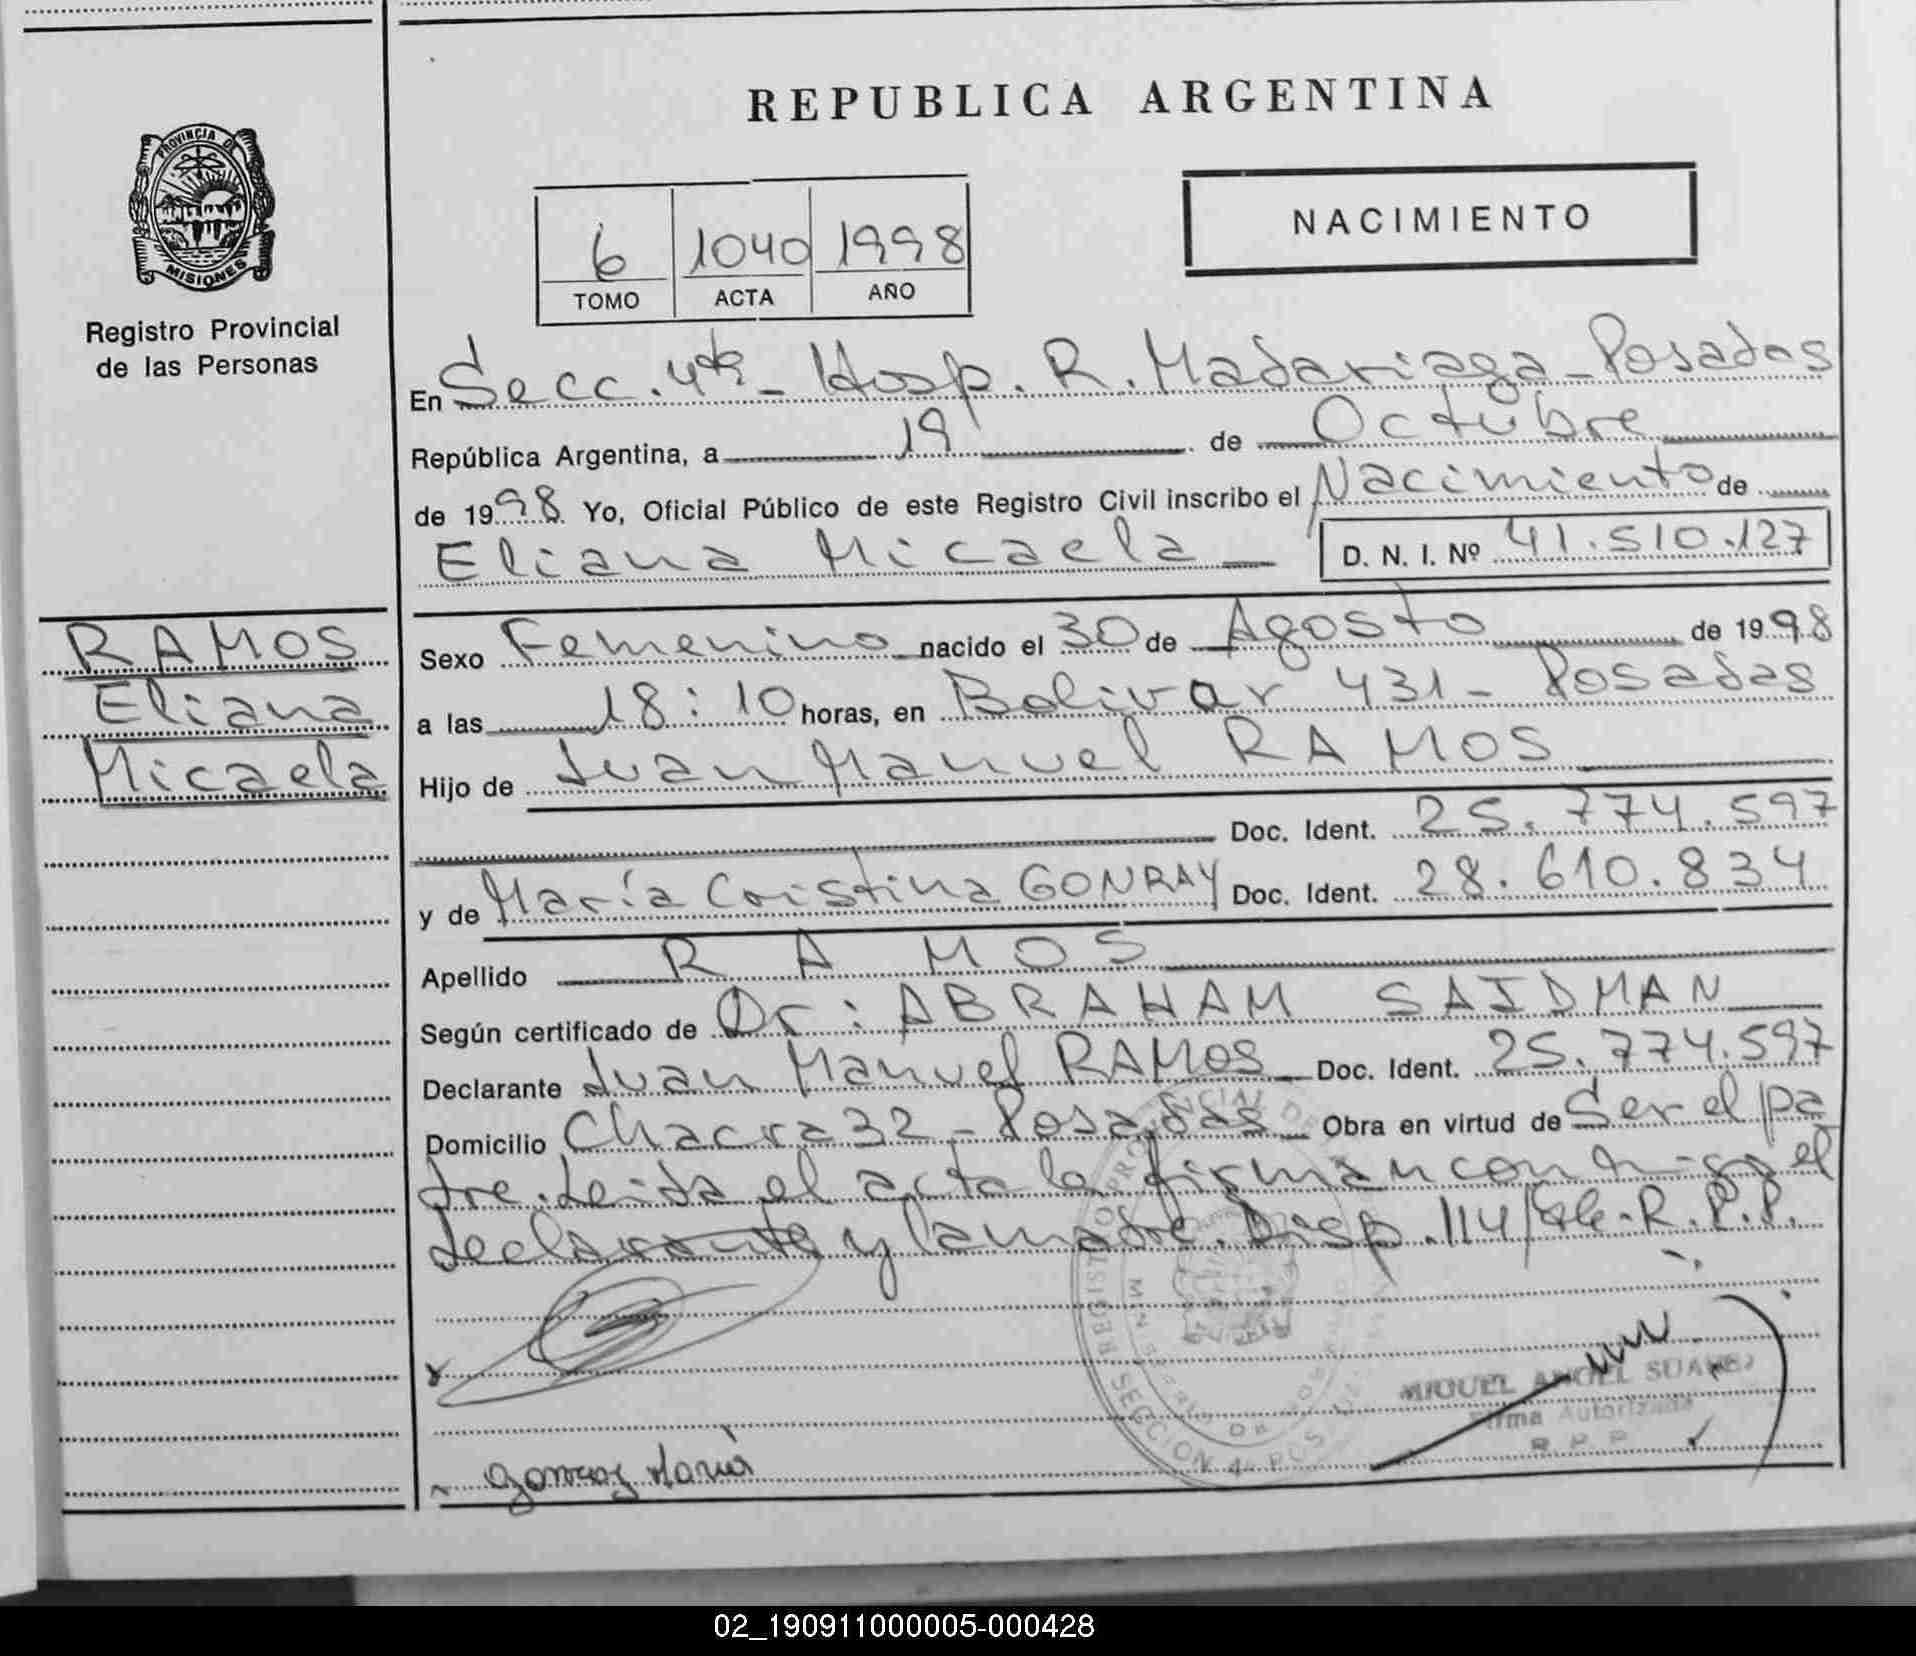 REPUBLICA ARGENTINA
PROVINCIA DE
MISIONES
Registro Provincial
de las Personas
NACIMIENTO
6 1040 1998
TOMO ACTA AÑO
En Secc. 4ta - Hosp. R. Madariaga - Posadas
República Argentina, a 19 de Octubre
de 1998 Yo, Oficial Público de este Registro Civil inscribo el Nacimiento de
Eliana Micaela D. N. I. Nº 41.510.127
RAMOS
Eliana
Micaela
Sexo Femenino nacido el 30 de Agosto de 1998
a las 18:10 horas, en Bolivar 431 - Posadas
Hijo de Juan Manuel RAMOS
Doc. Ident. 25.774.597
y de María Cristina GONRAY Doc. Ident. 28.610.834
Apellido RAMOS
Según certificado de Dr: ABRAHAM SAIDMAN
Declarante Juan Manuel RAMOS Doc. Ident. 25.774.597
Domicilio Chacra 32 - Posadas Obra en virtud de Ser el pa
dre. Leida el acta la firman con migo el
declarante y la madre. Disp. 114/ R.P.P.
MIGUEL ANGEL SUAREZ
Firma Autorizada
R P P
María
02_190911000005-000428